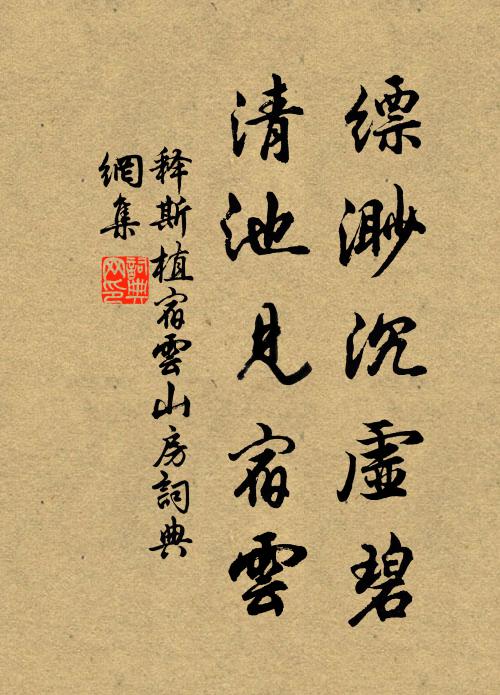 縹渺沉虛碧
清池見宿雲
釋斯植宿雲山房詞典
網集
詞典网印